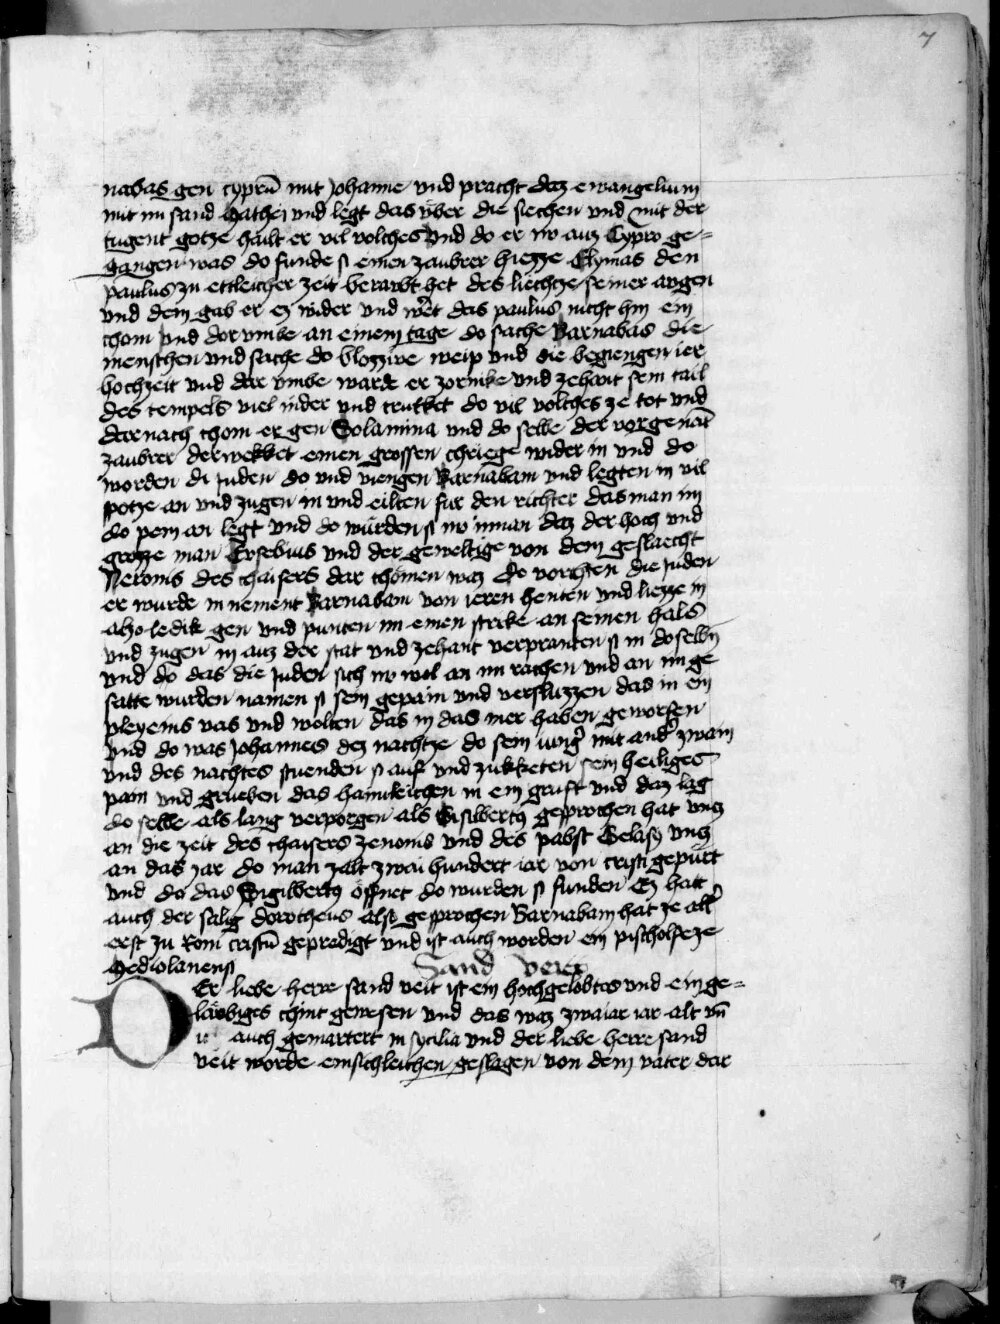 7
nabas gen cyprū mit Johanne vnd pracht daz ewangelium
mit im sand Mathei vnd legt das vber die siechen vnd mit der
tugent gotze hailt er vil volches vnd do er no auz Cypro ge-
gangen was do funde si einen zaubrer hiezze Elymas den
paulus zu etleicher zeit berawbt het des liechtze seiner augen
vnd dem gab er ez wider vnd wert das paulus nicht hin ein
chom vnd dor vmbe an einem tage do sache Barnabas die
menschen vnd sache do blozzwe weip vnd die begiengen ier
hochzeit vnd dar vmbe warde er zornike vnd zehant sein tail
des tempels viel nider vnd trukket do vil volches ze tot vnd
darnach chom er gen Solamina vnd do selbe der vorgenāt
zaubrer derwekket einen grossen chriege wider in vnd do
worden di Juden do vnd viengen Barnabam vnd legten in vil
spotze an vnd zugen in vnd eilten fur den richter das man im
do pein an legt vnd do wurden si no innan daz der hoch vnd
grozze man Eusebius vnd der geweltige von dem geslaecht
Neronis des chaisers dar chomen waz do vorchten die Juden
er wurde in nement Barnabam von ieren henten vnd liezze in
also ledik gen vnd punten im einen strike an seinen hals
vnd zugen in auz der stat vnd zehant verpranten si in doselbn
vnd do das die Juden sich no wol an im rachen vnd an im ge
satte wurden namen si sein gepain vnd versluzzen das in ein
pleyeins vas vnd wolten das in das mer haben geworfen
vnd do was Johannes dez nachtze do sein iung mit and zwain
vnd des nachtes stuenden si auf vnd zukketen sein heiliges
pain vnd grueben das haimleichen in ein gruft vnd daz lag
do selbe als lang verporgen als Sigilbertus gesprochen hat vncz
an die zeit des chaisers zenonis vnd des pabst Gelasij vncz
an das jar do man zalt zwai hundert iar von cristi gepurt
vnd do das Sigilbertus öffnet do wurden si funden Ez hatt
auch der salig dorotheus also gesprochen Barnabam hat ze all
erst zu Rom cristū gepredigt vnd ist auch worden ein pischolfeze
Mediolanensi
Sand Veit
DEr liebe herre sand veit ist ein hochgelobtes vnd ein ge-
läwbiges chint gewesen vnd das waz zwaiar iar alt vn̄
auch gemartert in sycilia vnd der liebe herre sand
veit worde einsichleichen geslagen von dem vater dar